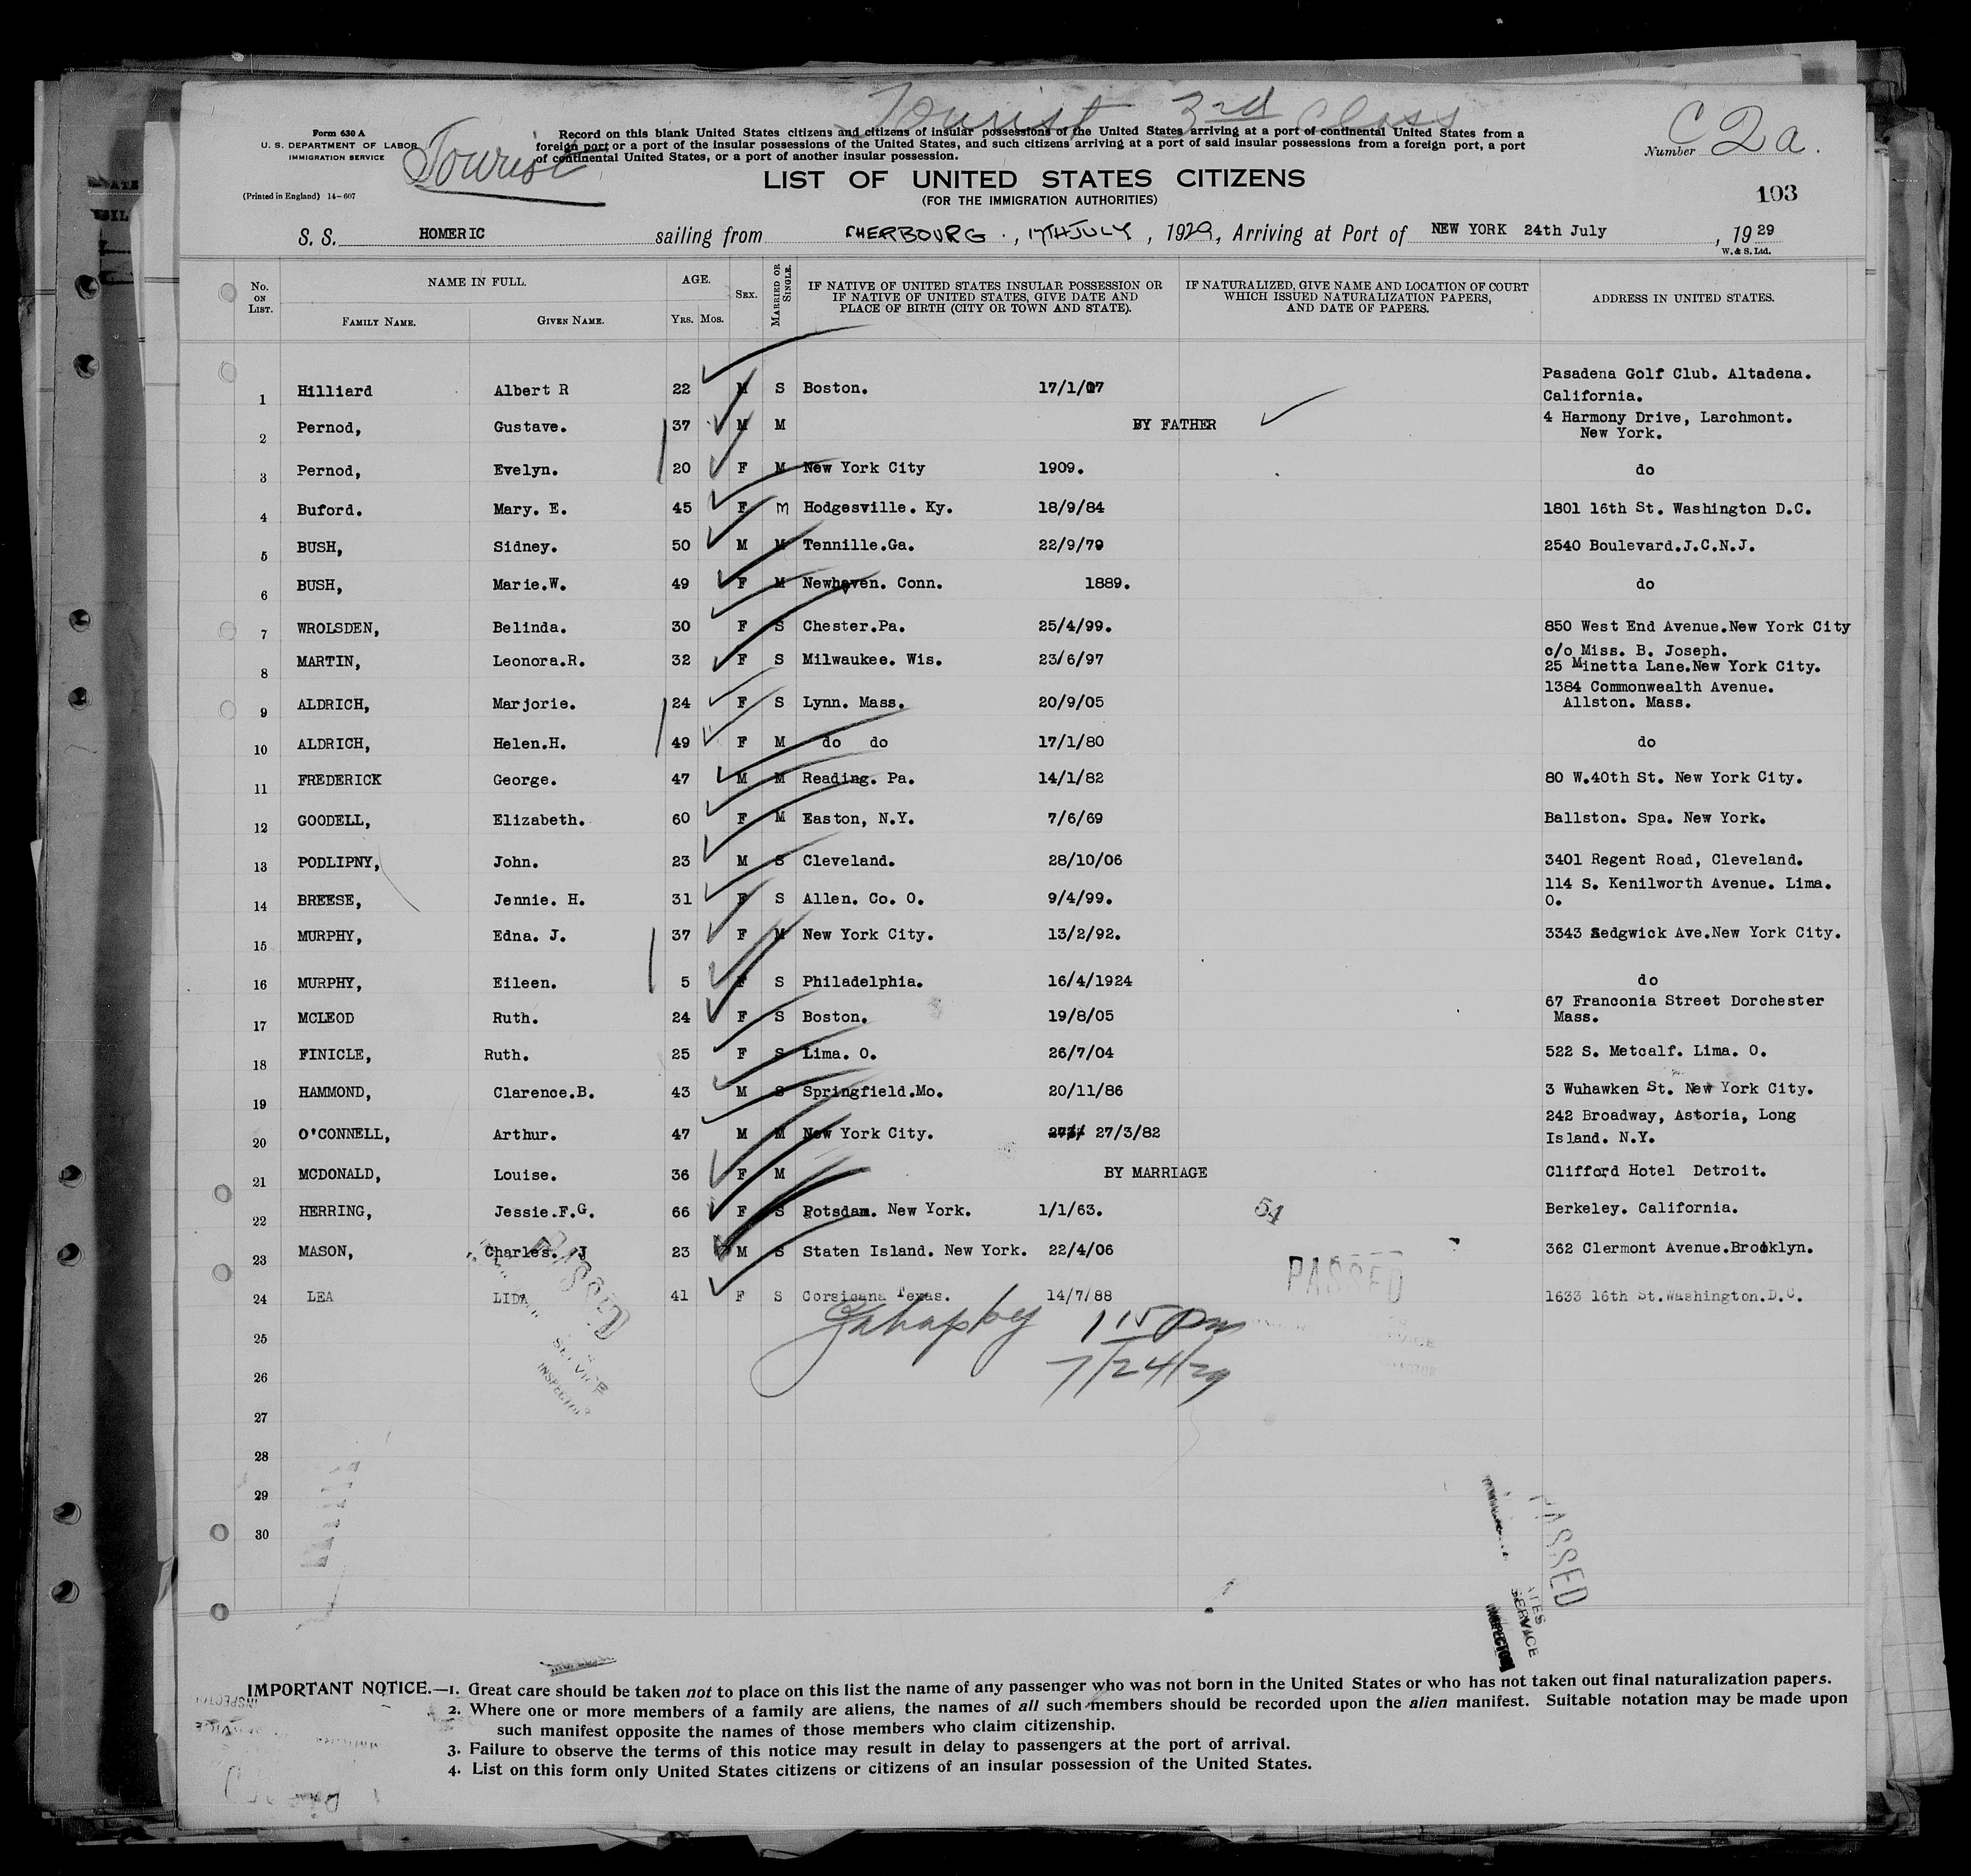 Tourist 3rd Class
Form 630 A
U. S. DEPARTMENT OF LABOR
IMMIGRATION SERVICE
Tourist
(Printed in England) 14-607
Record on this blank United States citizens and citizens of insular possessions of the United States arriving at a port of continental United States from a
foreign port or a port of the insular possessions of the United States, and such citizens arriving at a port of said insular possessions from a foreign port, a port
of continental United States, or a port of another insular possession.
Number C2a.
LIST OF UNITED STATES CITIZENS
(FOR THE IMMIGRATION AUTHORITIES)
103
S. S. HOMERIC sailing from CHERBOURG., 17TH JULY, 1929, Arriving at Port of NEW YORK 24th July, 1929
W. & S. Ltd.
No. ON LIST. NAME IN FULL. AGE. SEX. MARRIED OR SINGLE. IF NATIVE OF UNITED STATES INSULAR POSSESSION OR IF NATIVE OF UNITED STATES, GIVE DATE AND PLACE OF BIRTH (CITY OR TOWN AND STATE). IF NATURALIZED, GIVE NAME AND LOCATION OF COURT WHICH ISSUED NATURALIZATION PAPERS, AND DATE OF PAPERS. ADDRESS IN UNITED STATES.
FAMILY NAME. GIVEN NAME. YRS. MOS.
1 Hilliard Albert R 22 M S Boston. 17/1/07 Pasadena Golf Club. Altadena.
California.
2 Pernod, Gustave. 37 M M BY FATHER 4 Harmony Drive, Larchmont.
New York.
3 Pernod, Evelyn. 20 F M New York City 1909. do
4 Buford. Mary. E. 45 F M Hodgesville. Ky. 18/9/84 1801 16th St. Washington D.C.
5 BUSH, Sidney. 50 M M Tennille.Ga. 22/9/79 2540 Boulevard.J.C.N.J.
6 BUSH, Marie.W. 49 F M Newhaven. Conn. 1889. do
7 WROLSDEN, Belinda. 30 F S Chester.Pa. 25/4/99. 850 West End Avenue.New York City
8 MARTIN, Leonora.R. 32 F S Milwaukee. Wis. 23/6/97 c/o Miss. B. Joseph.
25 Minetta Lane.New York City.
9 ALDRICH, Marjorie. 24 F S Lynn. Mass. 20/9/05 1384 Commonwealth Avenue.
Allston. Mass.
10 ALDRICH, Helen.H. 49 F M do do 17/1/80 do
11 FREDERICK George. 47 M M Reading. Pa. 14/1/82 80 W.40th St. New York City.
12 GOODELL, Elizabeth. 60 F M Easton, N.Y. 7/6/69 Ballston. Spa. New York.
13 PODLIPNY, John. 23 M S Cleveland. 28/10/06 3401 Regent Road, Cleveland.
14 BREESE, Jennie. H. 31 F S Allen. Co. O. 9/4/99. 114 S. Kenilworth Avenue. Lima.
O.
15 MURPHY, Edna. J. 37 F M New York City. 13/2/92. 3343 Sedgwick Ave.New York City.
16 MURPHY, Eileen. 5 F S Philadelphia. 16/4/1924 do
17 MCLEOD Ruth. 24 F S Boston. 19/8/05 67 Franconia Street Dorchester
Mass.
18 FINICLE, Ruth. 25 F S Lima. O. 26/7/04 522 S. Metcalf. Lima. O.
19 HAMMOND, Clarence.B. 43 M S Springfield.Mo. 20/11/86 3 Wuhawken St. New York City.
20 O'CONNELL, Arthur. 47 M M New York City. 27/3/82 242 Broadway, Astoria, Long
Island. N.Y.
21 MCDONALD, Louise. 36 F M BY MARRIAGE Clifford Hotel Detroit.
22 HERRING, Jessie.F.G. 66 F S Potsdam. New York. 1/1/63. Berkeley. California.
54
23 MASON, Charles. J 23 M S Staten Island. New York. 22/4/06 362 Clermont Avenue.Brooklyn.
PASSED
PASSED
24 LEA LIDA 41 F S Corsicana Texas. 14/7/88 1633 16th St.Washington.D.C.
1 15 Pm
7/24/29
SERVICE
INSPECTOR
25
26
27
28
29
30
PASSED
SERVICE
INSPECTOR
IMPORTANT NOTICE.—1. Great care should be taken not to place on this list the name of any passenger who was not born in the United States or who has not taken out final naturalization papers.
2. Where one or more members of a family are aliens, the names of all such members should be recorded upon the alien manifest. Suitable notation may be made upon
such manifest opposite the names of those members who claim citizenship.
3. Failure to observe the terms of this notice may result in delay to passengers at the port of arrival.
4. List on this form only United States citizens or citizens of an insular possession of the United States.